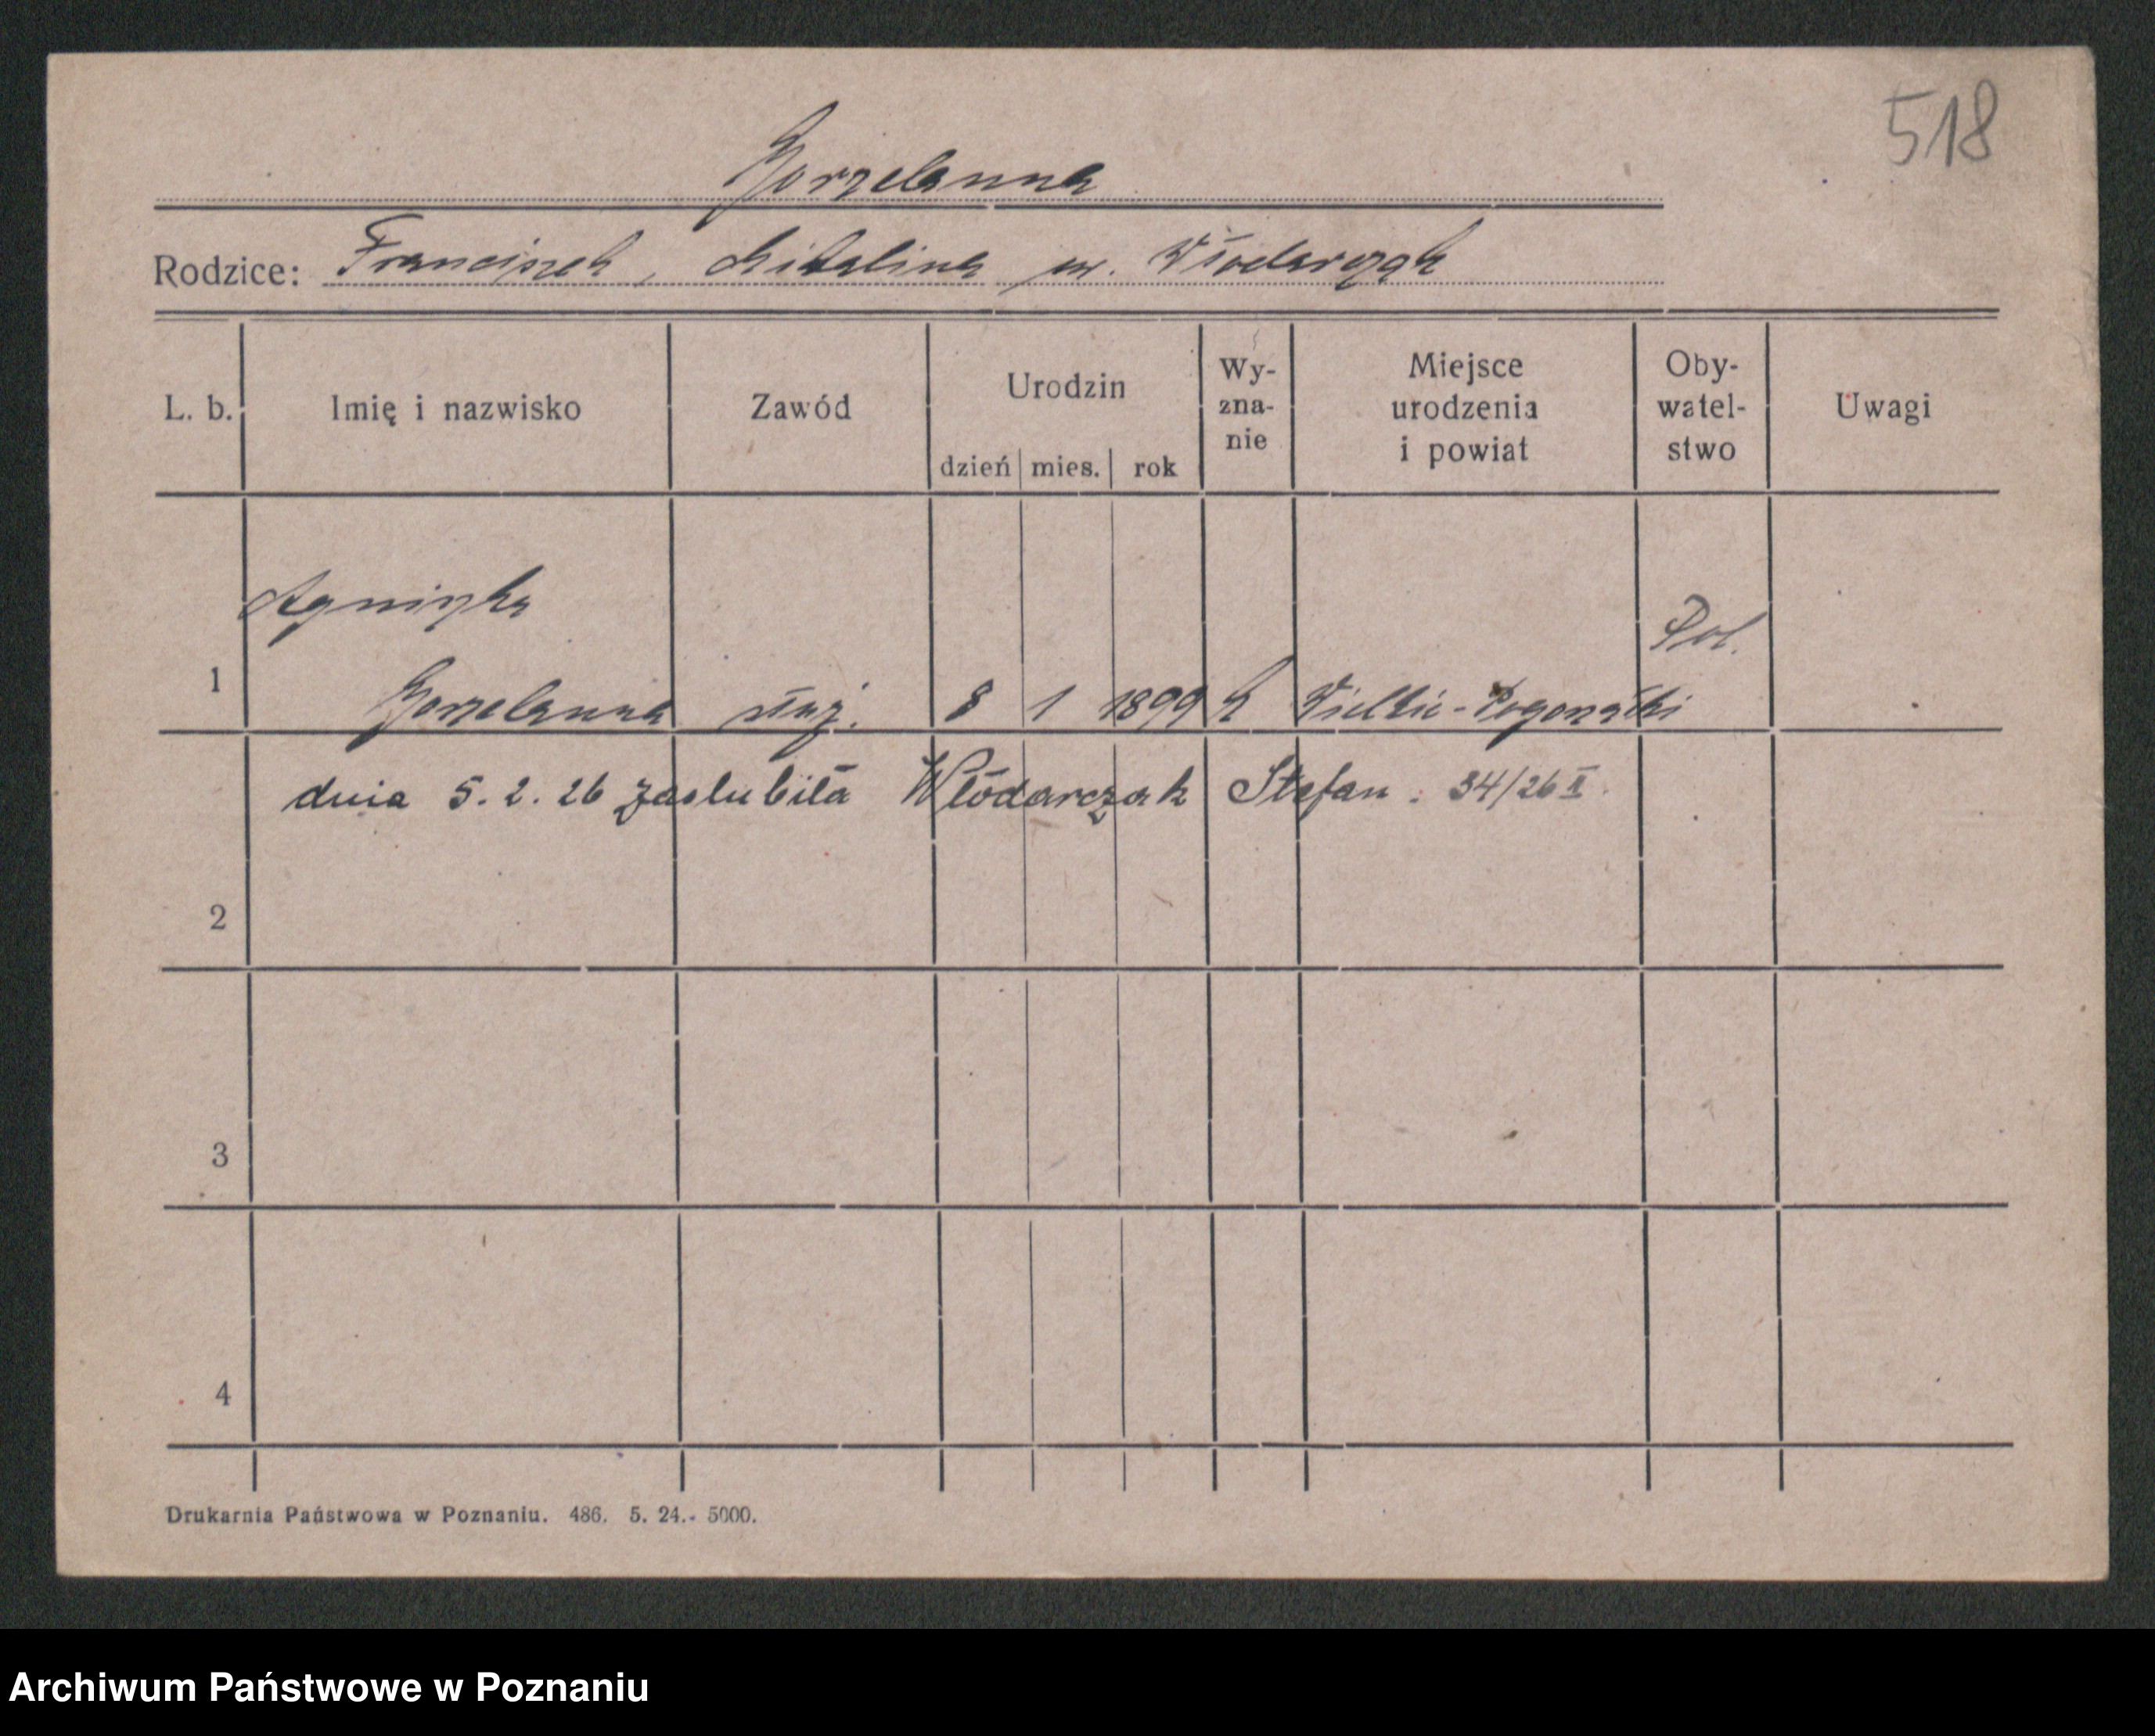 518
Gorzelanna
Rodzice: Franciszek, Mihalina ur. Włodarczak
L. b. Imię i nazwisko Zawód Urodzin dzień mies. rok Wy-zna-nie Miejsce urodzenia i powiat Oby-watel-stwo Uwagi
Agniszka Pol.
1 Gorzelanna służ. 8 1 1899 k Wielkie-
dnia 5. 2. 26 zaślubiła Włodarczak Stefan. 34/26 II.
2
3
4
Drukarnia Państwowa w Poznaniu. 486. 5. 24.- 5000.
Archiwum Państwowe w Poznaniu